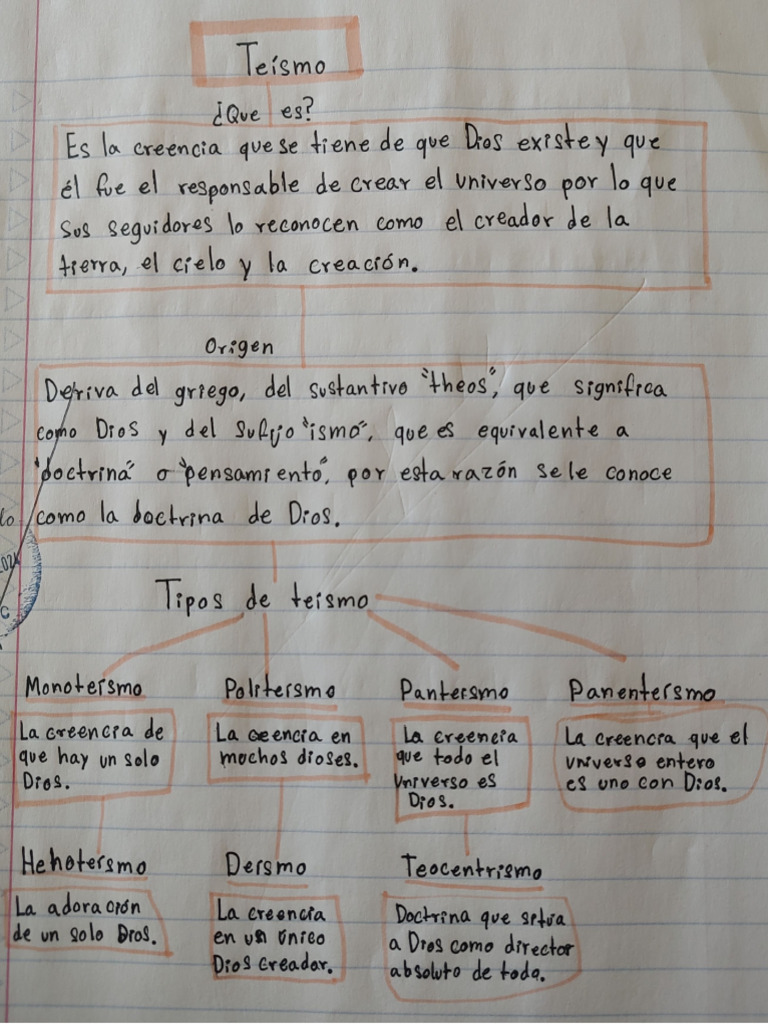 Teísmo
¿Que es?
Es la creencia que se tiene de que Dios existe y que
él fue el responsable de crear el universo por lo que
sus seguidores lo reconocen como el creador de la
tierra, el cielo y la creación.
Origen
Deriva del griego, del sustantivo "theos", que significa
como Dios y del sufijo "ismo", que es equivalente a
"doctrina" o "pensamiento", por esta razón se le conoce
como la doctrina de Dios.
lo
202
C
Tipos de teísmo
Monoteísmo
Politeísmo
Panteísmo
Panenteísmo
La creencia de
que hay un solo
Dios.
La creencia en
muchos dioses.
La creencia
que todo el
universo es
Dios.
La creencia que el
universo entero
es uno con Dios.
Hehoteísmo
Deísmo
Teocentrismo
La adoración
de un solo Dios.
La creencia
en un único
Dios creador.
Doctrina que sitúa
a Dios como director
absoluto de todo.